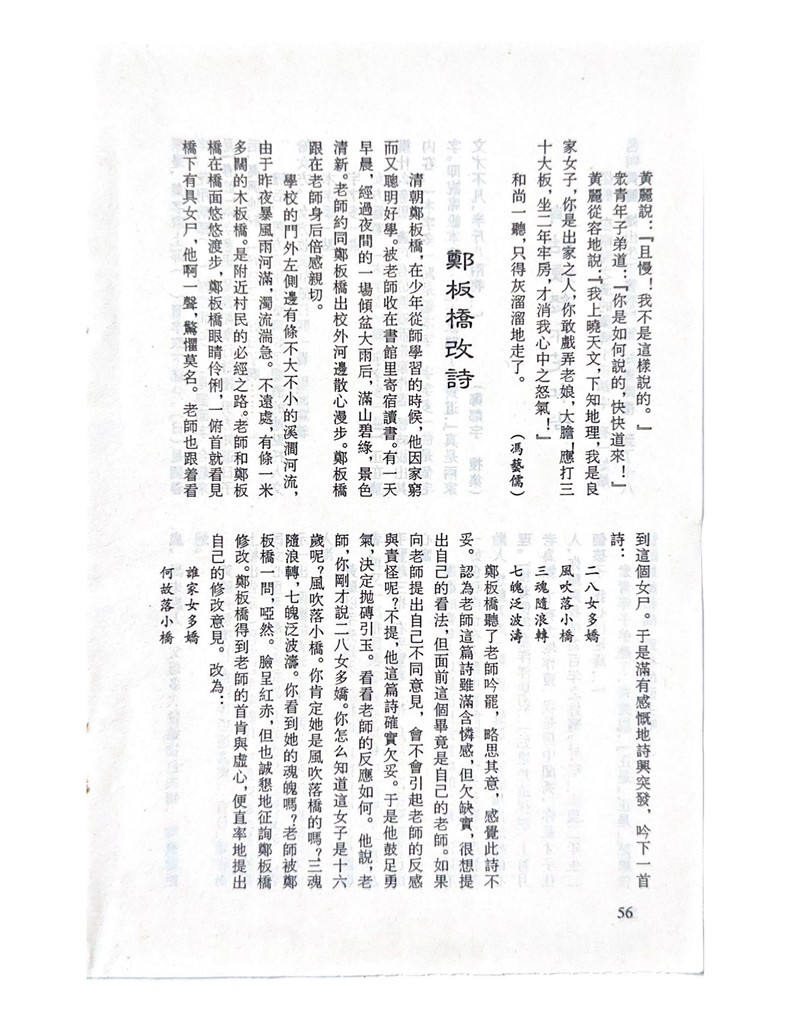 黃麗說：『且慢！我不是這樣說的。』
衆青年子弟道：『你是如何說的，快快道來！』
黃麗從容地說：『我上曉天文，下知地理，我是良
家女子，你是出家之人，你敢戲弄老娘，大膽！應打三
十大板，坐二年牢房，才消我心中之怒氣！』
和尚一聽，只得灰溜溜地走了。　（馮藝儒）
鄭板橋改詩
清朝鄭板橋，在少年從師學習的時候，他因家窮
而又聰明好學。被老師收在書館里寄宿讀書。有一天
早晨，經過夜間的一場傾盆大雨后，滿山碧綠，景色
清新。老師約同鄭板橋出校外河邊散心漫步。鄭板橋
跟在老師身后倍感親切。
學校的門外左側邊有條不大不小的溪澗河流，
由于昨夜暴風雨河滿，濁流湍急。不遠處，有條一米
多闊的木板橋。是附近村民的必經之路。老師和鄭板
橋在橋面悠悠渡步，鄭板橋眼睛伶俐，一俯首就看見
橋下有具女尸，他啊一聲，驚懼莫名。老師也跟着看
到這個女尸。于是滿有感慨地詩興突發，吟下一首
詩：
二八女多嬌
風吹落小橋
三魂隨浪轉
七魄泛波濤
鄭板橋聽了老師吟罷，略思其意，感覺此詩不
妥。認為老師這篇詩雖滿含憐感，但欠缺實，很想提
出自己的看法，但面前這個畢竟是自己的老師。如果
向老師提出自己不同意見，會不會引起老師的反感
與責怪呢？不提，他這篇詩確實欠妥。于是他鼓足勇
氣，決定抛磚引玉。看看老師的反應如何。他說，老
師，你剛才說二八女多嬌。你怎么知道這女子是十六
歲呢？風吹落小橋。你肯定她是風吹落橋的嗎？三魂
隨浪轉，七魄泛波濤。你看到她的魂魄嗎？老師被鄭
板橋一問，啞然。臉呈紅赤，但也誠懇地征詢鄭板橋
修改。鄭板橋得到老師的首肯與虛心，便直率地提出
自己的修改意見。改為：
誰家女多嬌
何故落小橋
56